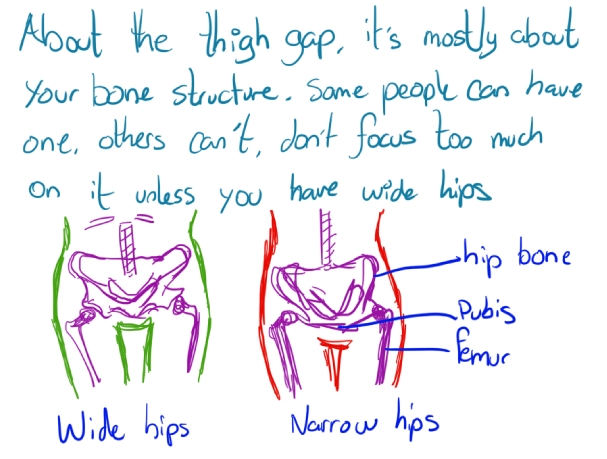 About the thigh gap, it's mostly about
your bone structure. Some people can have
one, others can't, don't focus too much
on it unless you have wide hips
hip bone
Pubis
femur
Wide hips
Narrow hips